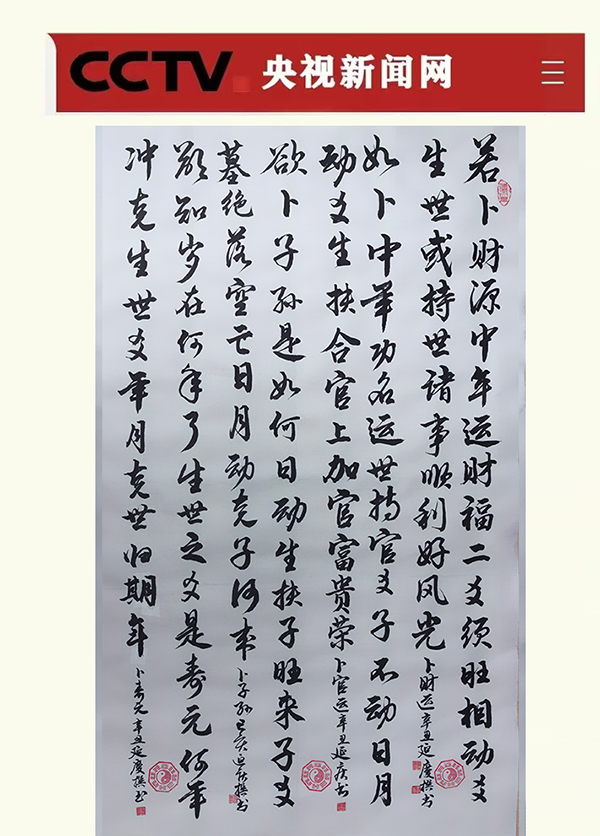 CCTV 央视新闻网
若卜财源中年运财福二爻须旺相动爻
生世或持世诸事顺利好风光
卜财运辛丑延庆撰书
如卜中年功名运世持官爻子不动日月
动爻生扶合官上加官富贵荣
卜官运辛丑延庆书
欲卜子孙是如何日动生扶子旺来子爻
墓绝落空亡日月动克子何来
卜子孙己亥延庆撰书
欲知岁在何年了生世之爻是寿元何年
冲克生世爻年月克世归期年
卜寿元辛丑延庆撰书